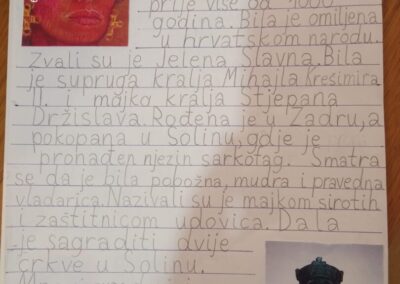 prije više od 1000
godina. Bila je omiljena
u hrvatskom narodu.
Zvali su je Jelena Slavna. Bila
je supruga kralja Mihajla Krešimira
II. i majka kralja Stjepana
Držislava. Rođena je u Zadru, a
pokopana u Solinu, gdje je
pronađen njezin sarkofag. Smatra
se da je bila pobožna, mudra i pravedna
vladarica. Nazivali su je majkom sirotih
i zaštitnicom udovica. Dala
je sagraditi dvije
crkve u Solinu.